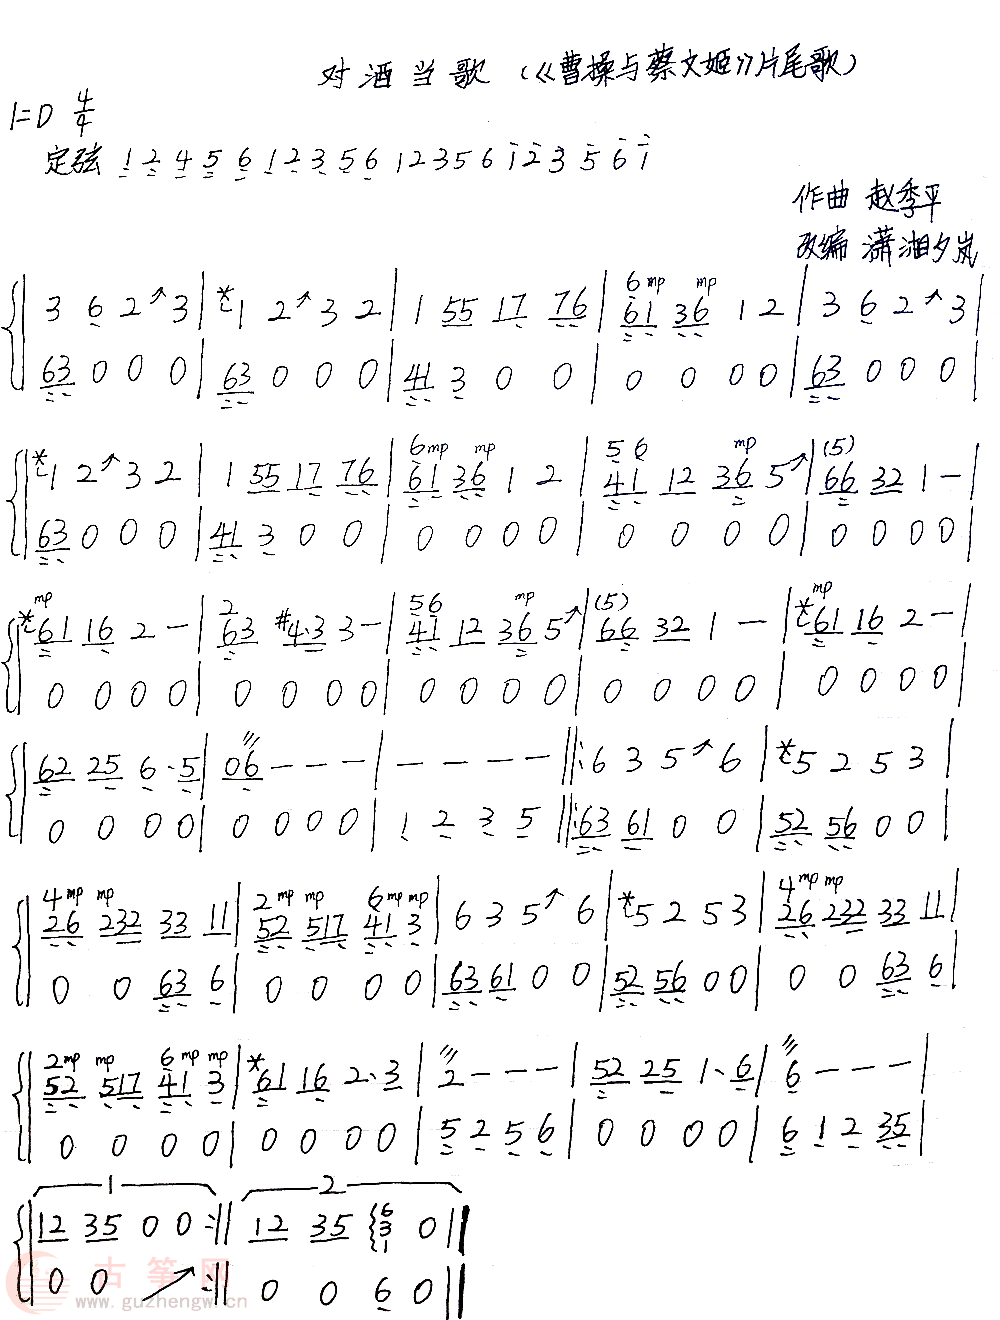 对酒当歌（《曹操与蔡文姬》片尾歌）
1=D 4/4
定弦 1 2 4 5 6 1 2 3 5 6 1 2 3 5 6 1 2 3 5 6 1
作曲 赵季平
改编 潇湘夕岚
3 6 2 ↗ 3 | *1 2 ↗ 3 2 | 1 55 17 76 | 6mp mp 61 36 1 2 | 3 6 2 ↗ 3 |
63 0 0 0 | 63 0 0 0 | 41 3 0 0 | 0 0 0 0 | 63 0 0 0 |
*1 2 ↗ 3 2 | 1 55 17 76 | 6mp mp 61 36 1 2 | 56 mp 41 12 36 5 ↗ | (5) 66 32 1 – |
63 0 0 0 | 41 3 0 0 | 0 0 0 0 | 0 0 0 0 | 0 0 0 0 |
mp *61 16 2 – | 2 63 #4·3 3 – | 56 mp 41 12 36 5 ↗ | (5) 66 32 1 – | mp *61 16 2 – |
0 0 0 0 | 0 0 0 0 | 0 0 0 0 | 0 0 0 0 | 0 0 0 0 |
62 25 6 · 5 | 06 – – – | – – – – ‖: 6 3 5 ↗ 6 | *5 2 5 3 |
0 0 0 0 | 0 0 0 0 | 1 2 3 5 ‖: 63 61 0 0 | 52 56 0 0 |
4mp mp 26 232 33 11 | 2mp mp 6mp mp 52 517 41 3 | 6 3 5 ↗ 6 | *5 2 5 3 | 4mp mp 26 232 33 11 |
0 0 63 6 | 0 0 0 0 | 63 61 0 0 | 52 56 0 0 | 0 0 63 6 |
2mp mp 6mp mp 52 517 41 3 | *61 16 2 · 3 | 2 – – – | 52 25 1 · 6 | 6 – – – |
0 0 0 0 | 0 0 0 0 | 5 2 5 6 | 0 0 0 0 | 6 1 2 35 |
1 2
12 35 0 0 :‖ 12 35 631 0 ‖
0 0 ↗ :‖ 0 0 6 0 ‖
古筝网
www.guzhengw.cn